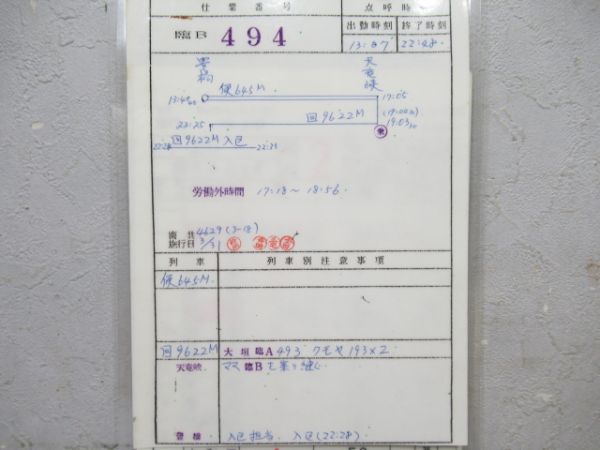 仕業番号 点呼時
臨B 494 出勤時刻 終了時刻
13:07 22:48
豊橋 天竜峡
便645M
17:05
回9622M
(19:00)
19:03
22:25
回9622M 入区
22:28 22:33
労働外時間 17:18~18:56.
4629(3-18)
施行日 3/31
列車 列車別注意事項
便645M
回9622M 大垣臨A493 クモヤ193×2
天竜峡 ママ臨B
豊橋 入区担当. 入区(22:28)